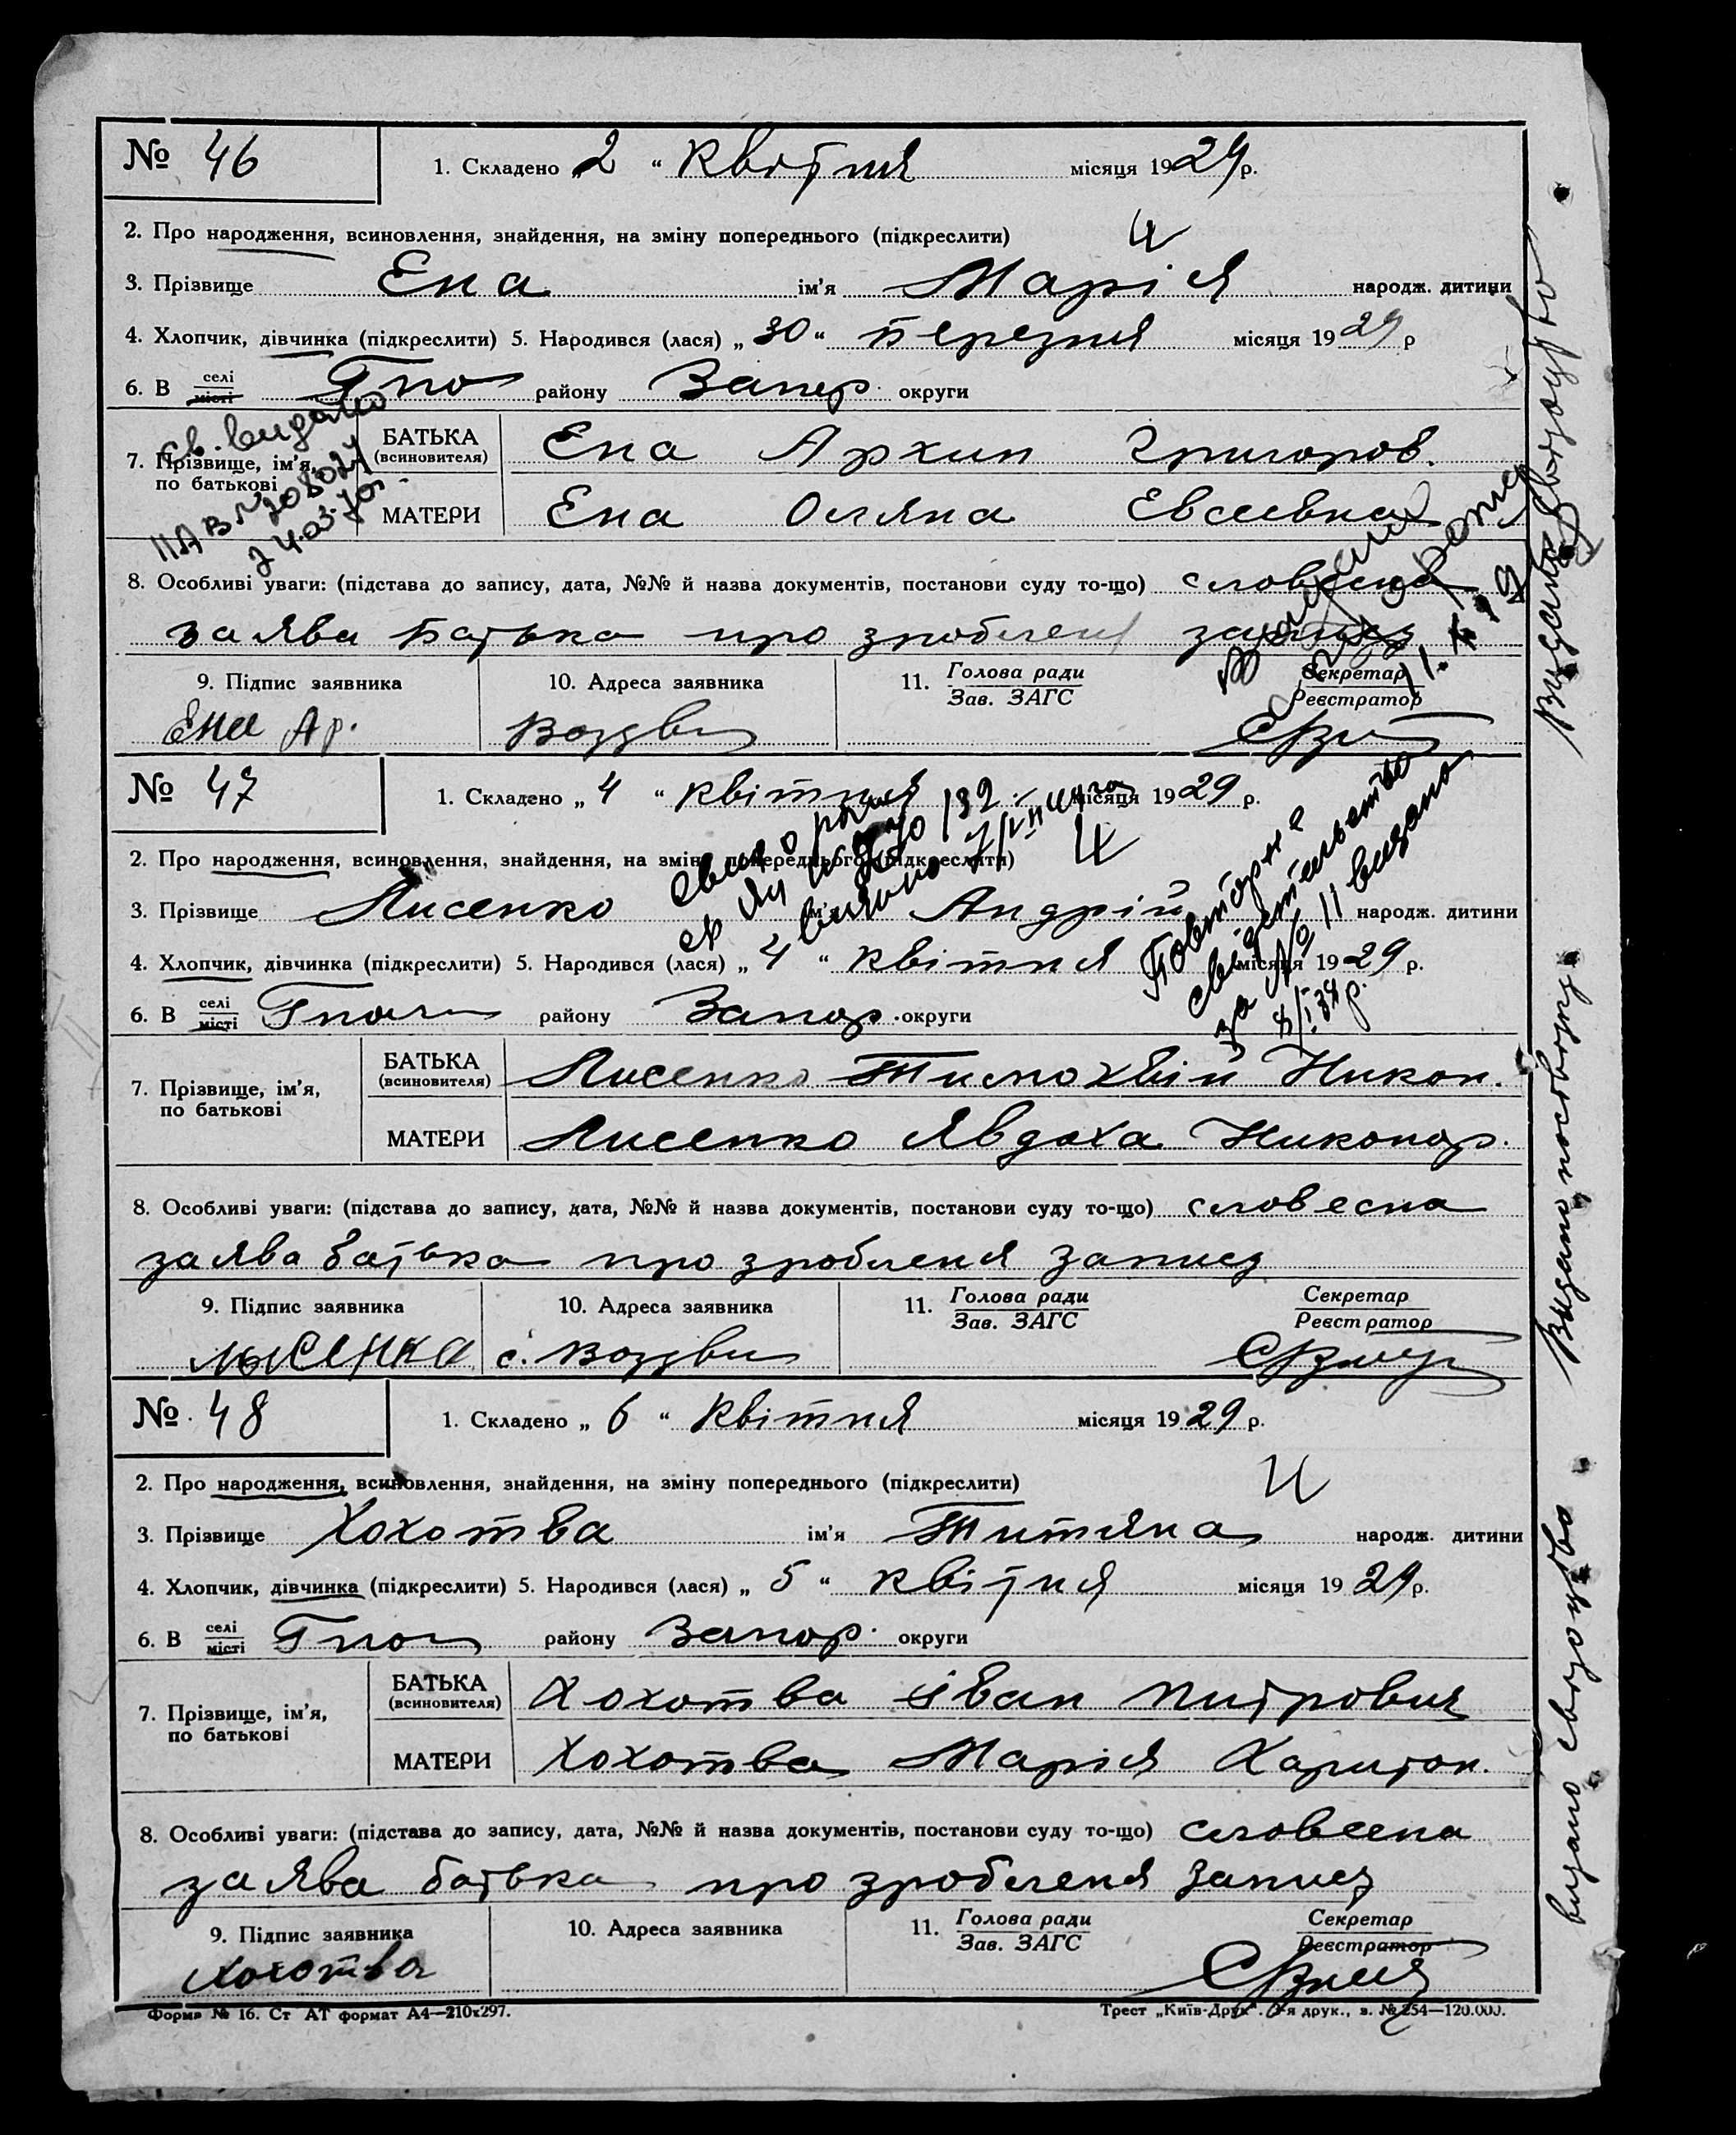 № 46 1. Складено „ 2 “ Квітня місяця 1929 р.
2. Про народження, всиновлення, знайдення, на зміну попереднього (підкреслити) Ч
3. Прізвище Ена ім’я Марія народж. дитини
4. Хлопчик, дівчинка (підкреслити) 5. Народився (лася) „ 30 “ березня місяця 1929 р
6. В селі місті району Запор. округи
Св. видано
ІІАВ №
7. Прізвище, ім’я, по батькові
БАТЬКА (всиновителя) Ена Архип Григоров.
МАТЕРИ Ена Оляна Евсеевна
8. Особливі уваги: (підстава до запису, дата, №№ й назва документів, постанови суду то-що) словесна
заява батька про зроблені запису
9. Підпис заявника 10. Адреса заявника 11. Голова ради Зав. ЗАГС Секретар Реєстратор
Ена Ар. Воздви
Видано свидоцтво
№ 47 1. Складено „ 4 “ квітня місяця 1929 р.
2. Про народження, всиновлення, знайдення, на зміну попереднього (підкреслити) Ч
3. Прізвище Лисенко ім’я Андрій народж. дитини
4. Хлопчик, дівчинка (підкреслити) 5. Народився (лася) „ 4 “ квітня місяця 1929 р.
6. В селі місті району Запор. округи
Повторне
свідетельство
за № 11 видано
8/І-34 р.
7. Прізвище, ім’я, по батькові
БАТЬКА (всиновителя) Лисенко Тимохвій Никон.
МАТЕРИ Лисенко Явдоха Никонор.
8. Особливі уваги: (підстава до запису, дата, №№ й назва документів, постанови суду то-що) словесна
заява батька про зробленя запису
9. Підпис заявника 10. Адреса заявника 11. Голова ради Зав. ЗАГС Секретар Реєстратор
лысенка с. Воздви
Видано
№ 48 1. Складено „ 6 “ Квітня місяця 1929 р.
2. Про народження, всиновлення, знайдення, на зміну попереднього (підкреслити) Ч
3. Прізвище Хохотва ім’я Титяна народж. дитини
4. Хлопчик, дівчинка (підкреслити) 5. Народився (лася) „ 5 “ квітня місяця 1929 р.
6. В селі місті району Запор. округи
7. Прізвище, ім’я, по батькові
БАТЬКА (всиновителя) Хохотва Іван Питрович
МАТЕРИ Хохотва Марія Харитон.
8. Особливі уваги: (підстава до запису, дата, №№ й назва документів, постанови суду то-що) словесна
заява батька про зробленя запису
9. Підпис заявника 10. Адреса заявника 11. Голова ради Зав. ЗАГС Секретар Реєстратор
Хохотва
видано свидоцтво
Форма № 16. Ст АТ формат А4—210х297. Трест „Київ-Друк“. друк., з. № 254—120.000.